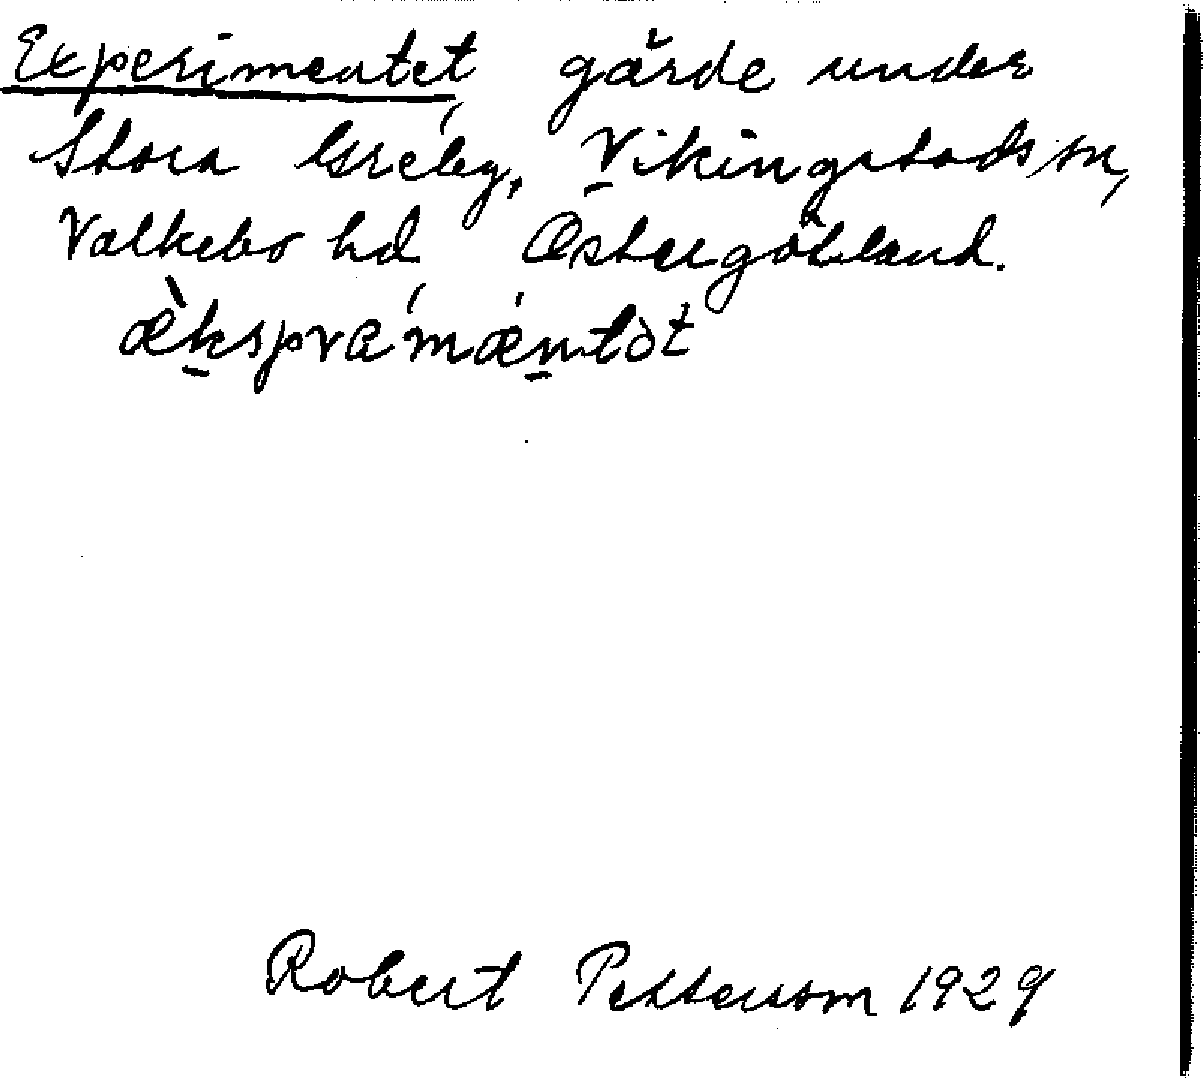 Experimentet, gärde under
Stora Greby, Vikingstads sn,
Valkebo hd, Östergötland.
Robert Pettersson 1929